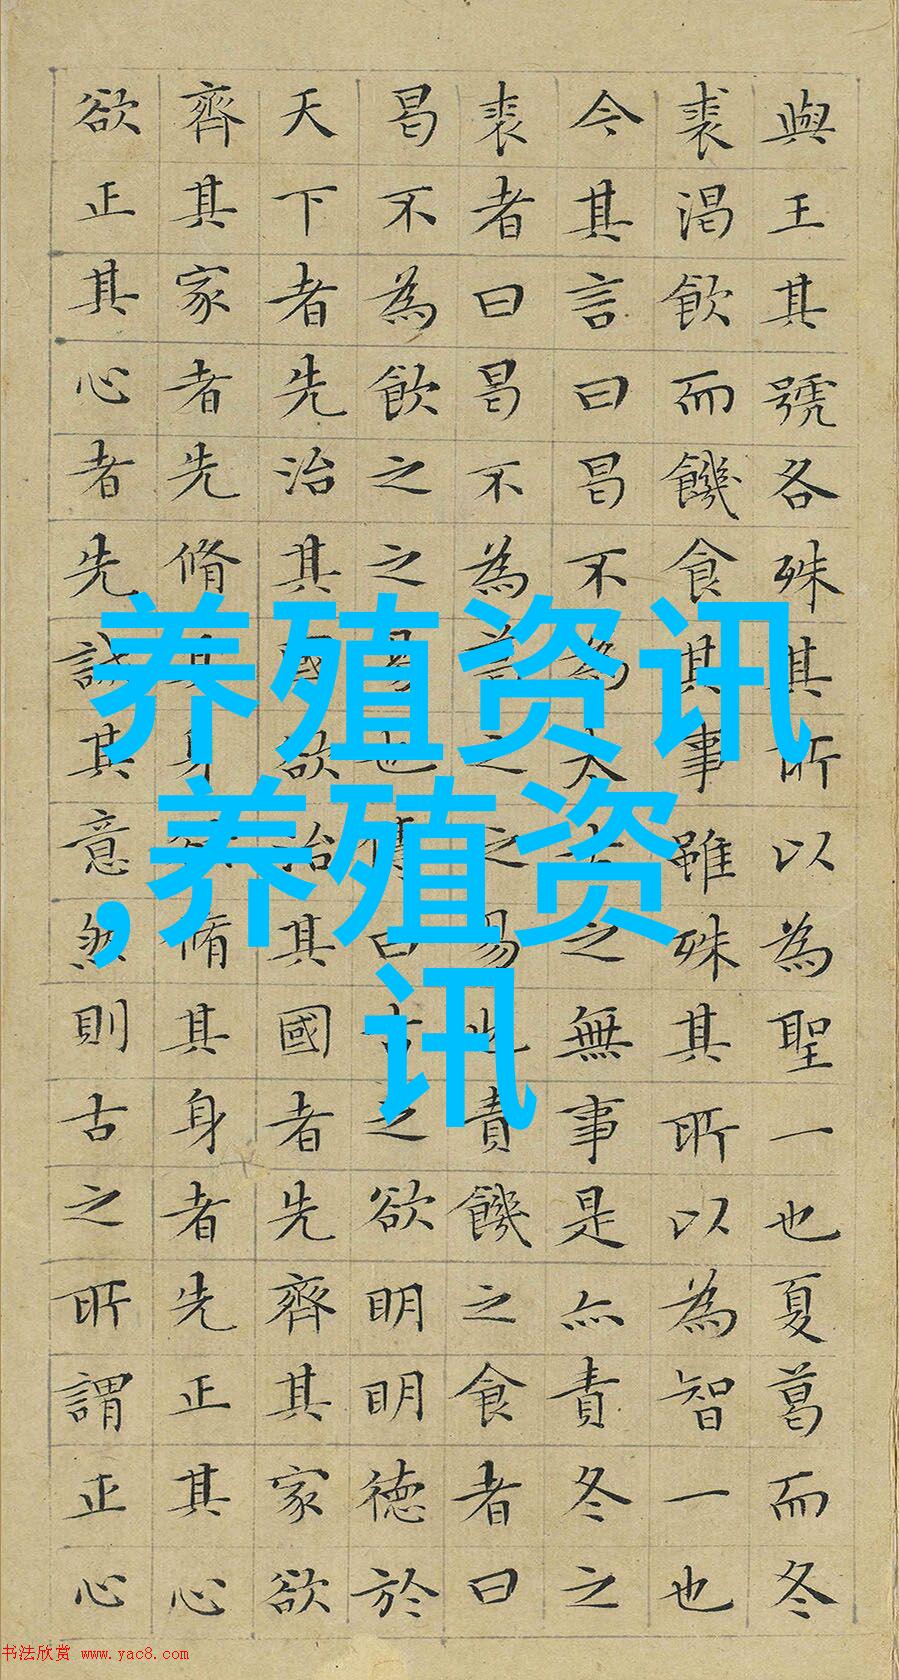 與王其號各殊其所以為聖一也夏葛而冬
裘渴飲而饑食其事雖殊其所以為智一也
今其言曰曷不為太古之無事是亦責冬之
裘者曰曷不為葛之之易也責饑之食者曰
曷不為飲之之易也傳曰古之欲明明德於
天下者先治其國欲治其國者先齊其家欲
齊其家者先脩其身欲脩其身者先正其心
欲正其心者先誠其意然則古之所謂正心
养殖资讯
,养殖资
讯
书法欣赏 www.yac8.com